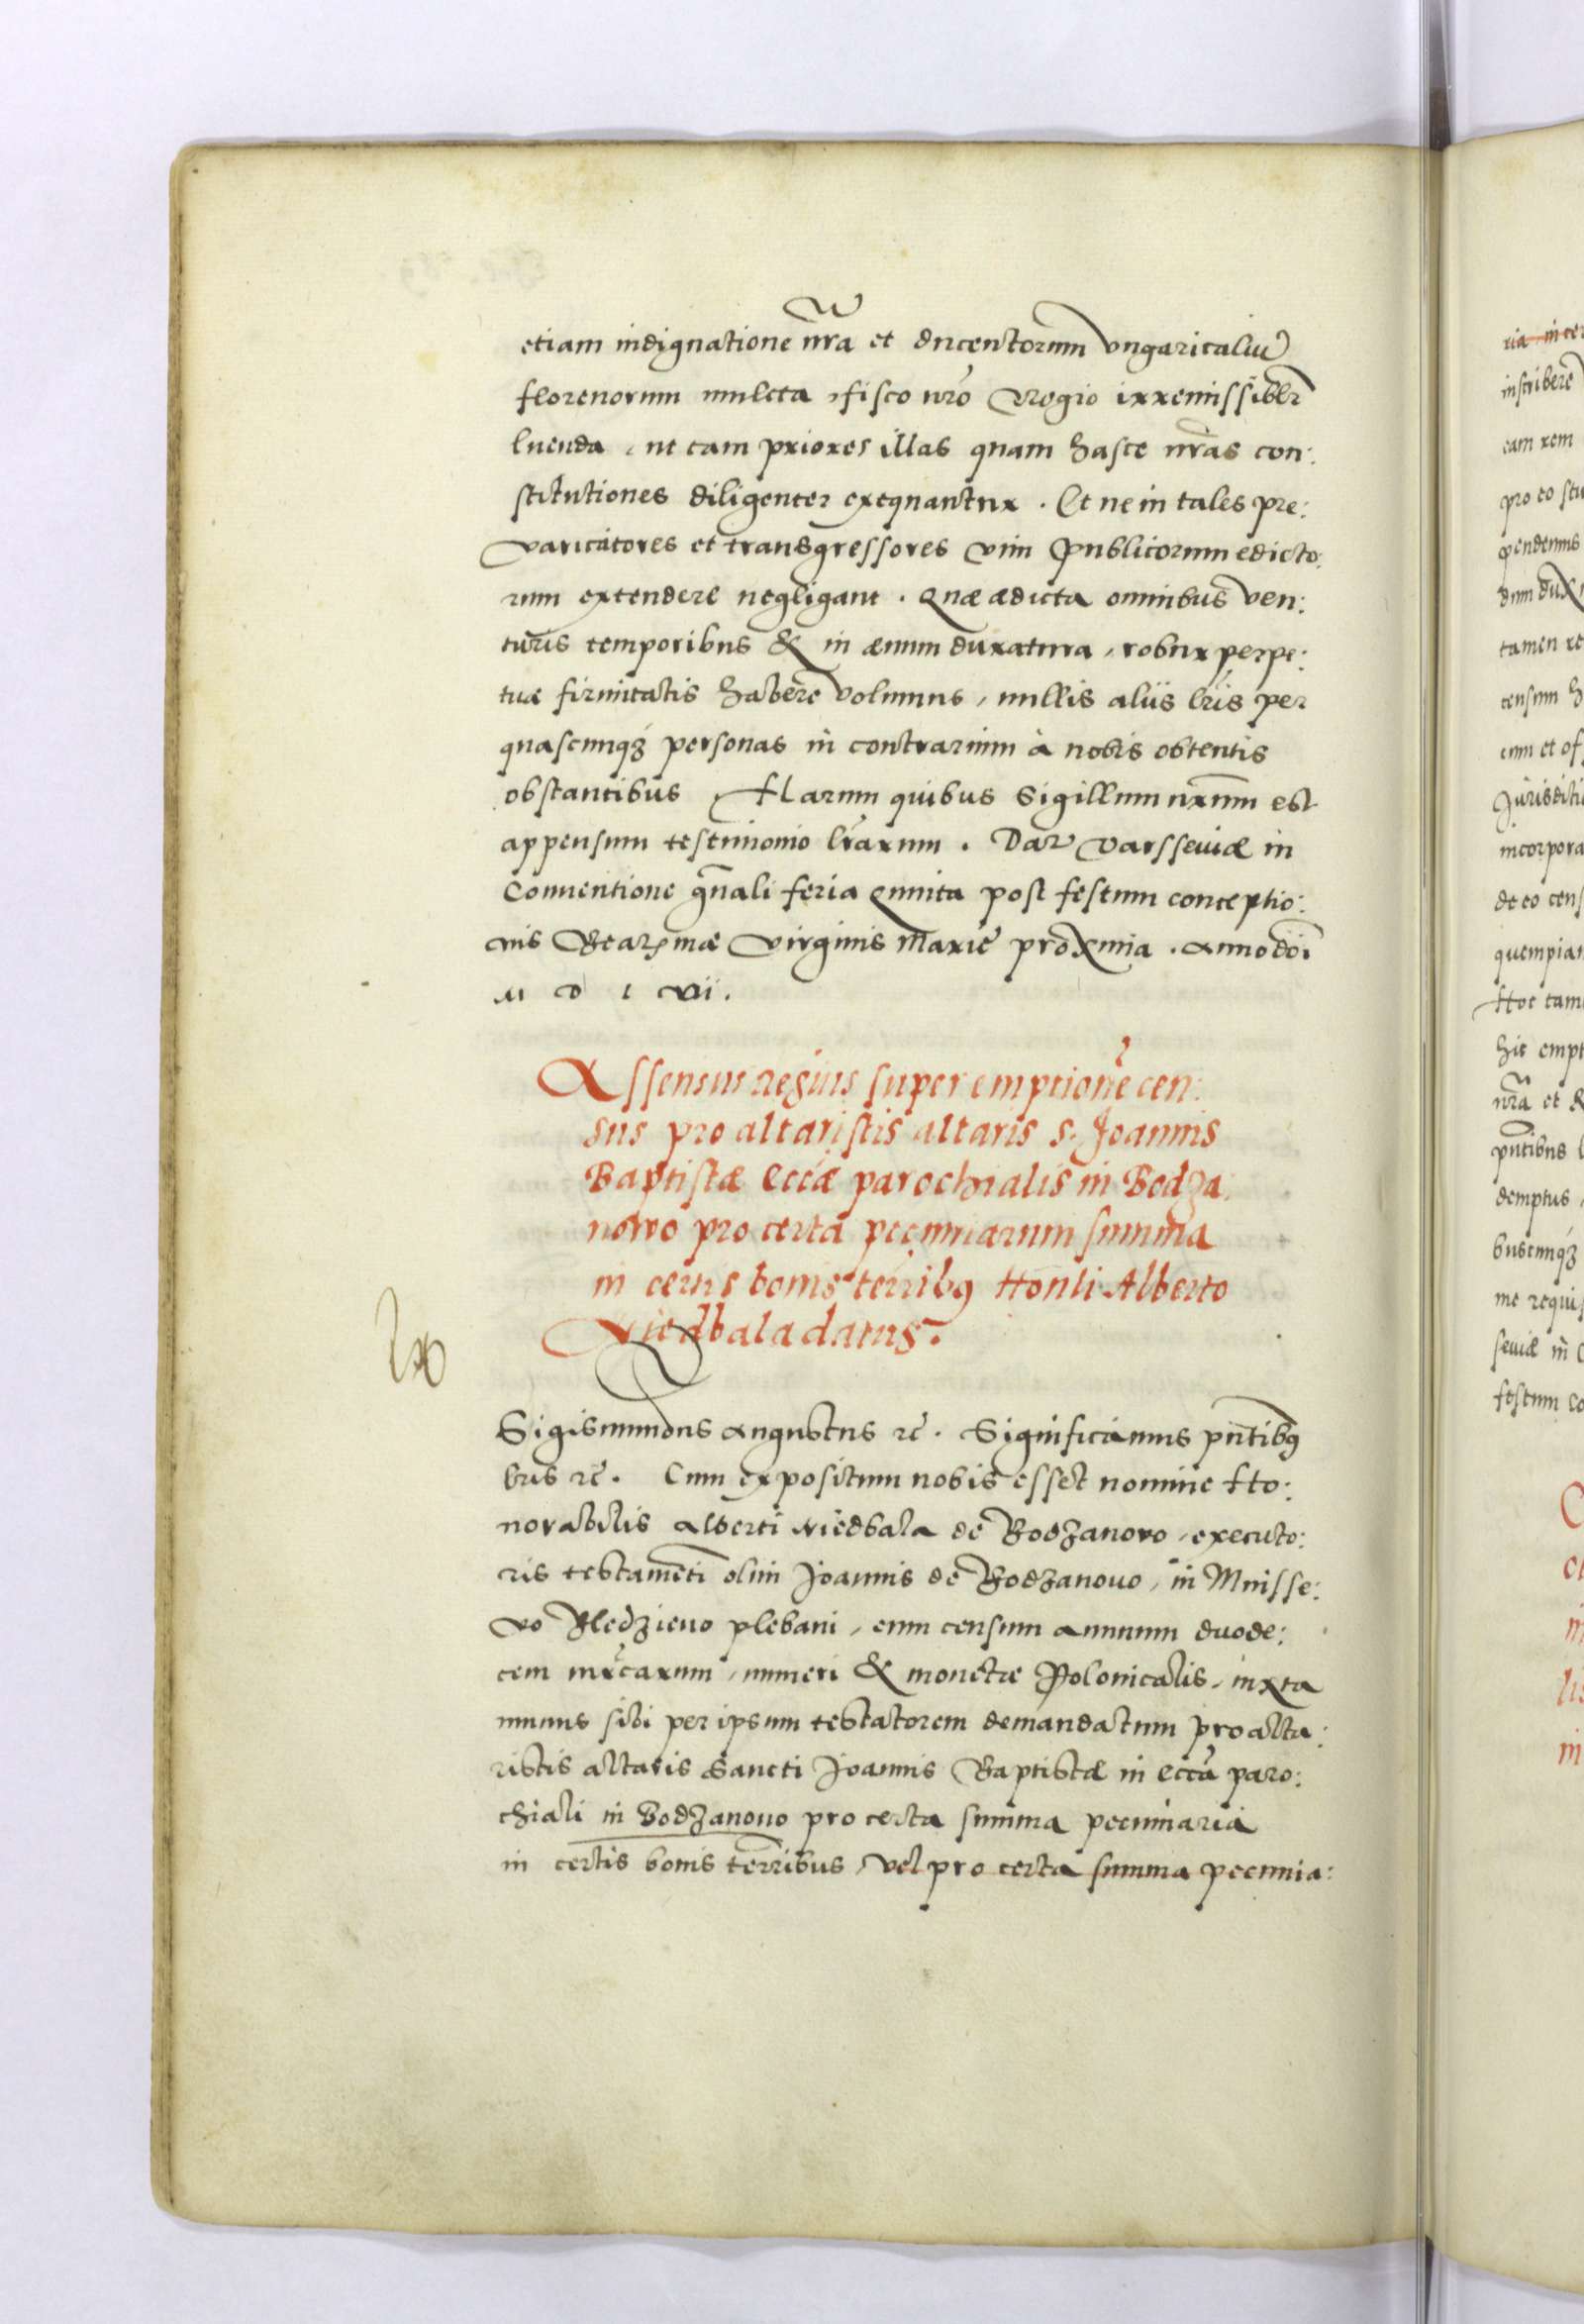 etiam indignatione nr̃a et ducentorum vngaricaliũ
florenorum mulcta, fisco nr̃o Regio irremissiblr̃
luenda, ut tam priores illas quam hasce nr̃as con:
stitutiones diligenter exequantur. Et ne in tales pre:
varicatores et transgressores vim publicorum edicto:
rum extendere negligant. Quæ ædicta omnibus ven:
turis temporibus & in æuum duratura, robur perpe:
tuæ firmitatis habere volumus, nullis aliis lr̃is per
quascunqꝫ personas in contrarium à nobis obtentis
obstantibus Harum quibus Sigillum nr̃um est
appensum testimonio lr̃arum. Dat̃ Varsseuiæ in
Conuentione gñali feria Quinta post festum conceptio:
nis Beatꝫmæ Virginis Mariæ proxima. Anno dñi
M D L vii.
Assensus regius super emptionẽ cen:
sus pro altaristis altaris s. Joannis
Baptistæ eccĩæ parochialis in Bodza:
nowo pro certa pecuniarum summa
in certis bonis terr̃ibꝰ Honli Alberto
Niedbala datus.
Sigismundus Augustus rc̃. Significamus pñtibꝰ
lr̃is rc̃. Cum expositum nobis esset nomine Ho:
norabilis Alberti Niedbala de Bodzanowo, executo:
ris testamẽti olim Joannis de Bodzanouo, in Mnisse:
wo Kledzieuo plebani, eum censum annuum duode:
cem mr̃carum, numeri & monetæ Polonicalis, iuxta
munus sibi per ipsum testatorem demandatum pro alta:
ristis altaris Sancti Joannis Baptistæ in eccĩa paro:
chiali in Bodzanouo pro certa summa pecuniaria
in certis bonis terr̃ibus, vel pro certa summa pecunia: